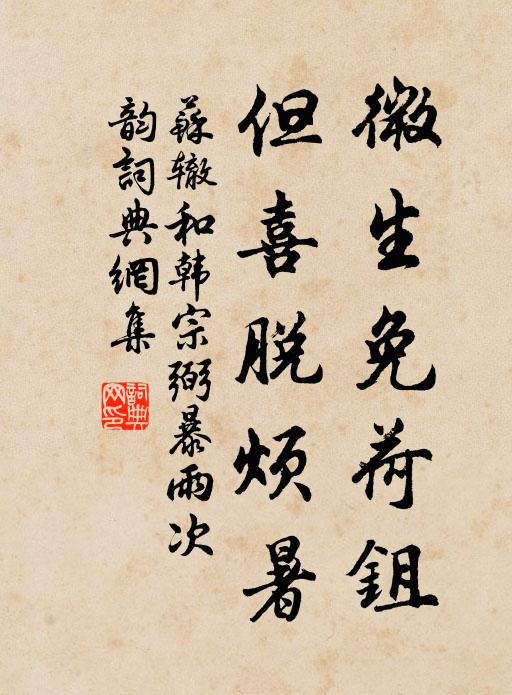 微生免荷鉏
但喜脱烦暑
蘇辙和韩宗弼暴雨次
韵詞典網集
詞典
网印